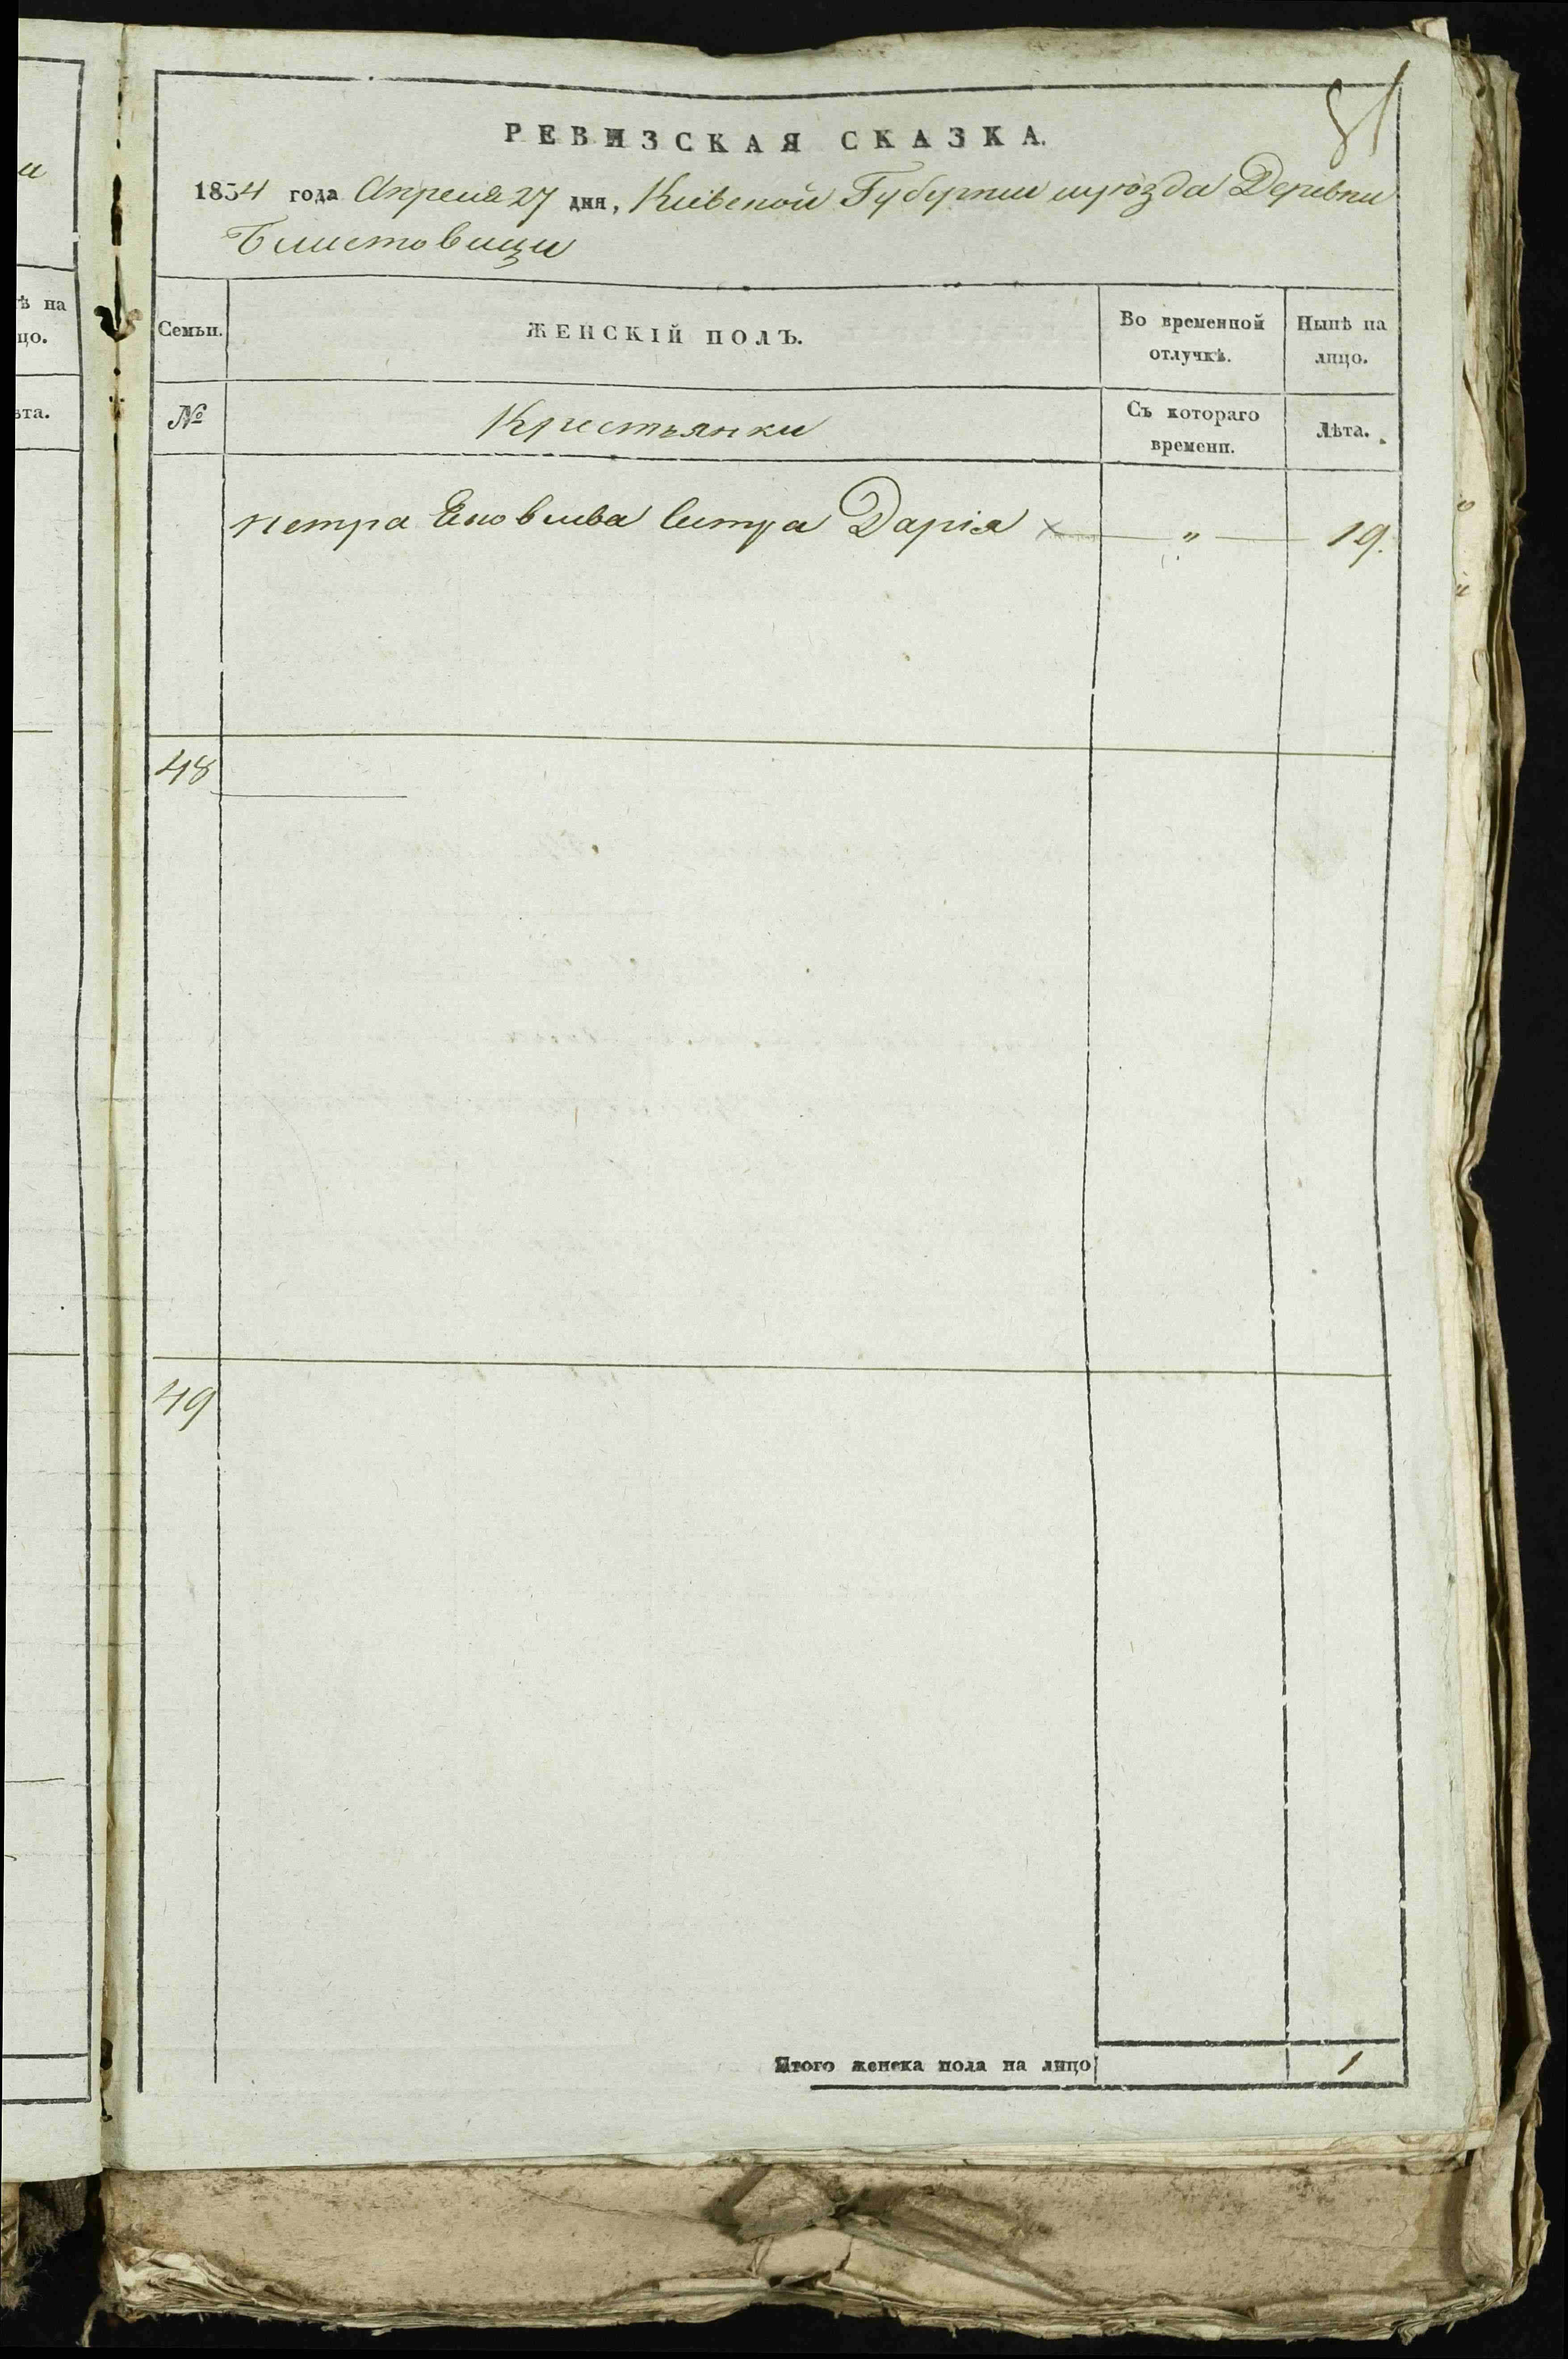 81
РЕВИЗСКАЯ СКАЗКА.
1854 года Апреля 27 дня, Кіевской Губерніи и уюзда Деревни
Блистовици
ѣ на
цо.
ѣта.
Семьи.
ЖЕНСКІЙ ПОЛЪ.
Во временной
отлучкѣ.
Нынѣ на
лицо.
№
Крестьянки
Съ котораго
времени.
Лѣта.
петра Яковлева Сестра Дарія × — „ — 19.
48
49
Итого женска пола на лицо 1